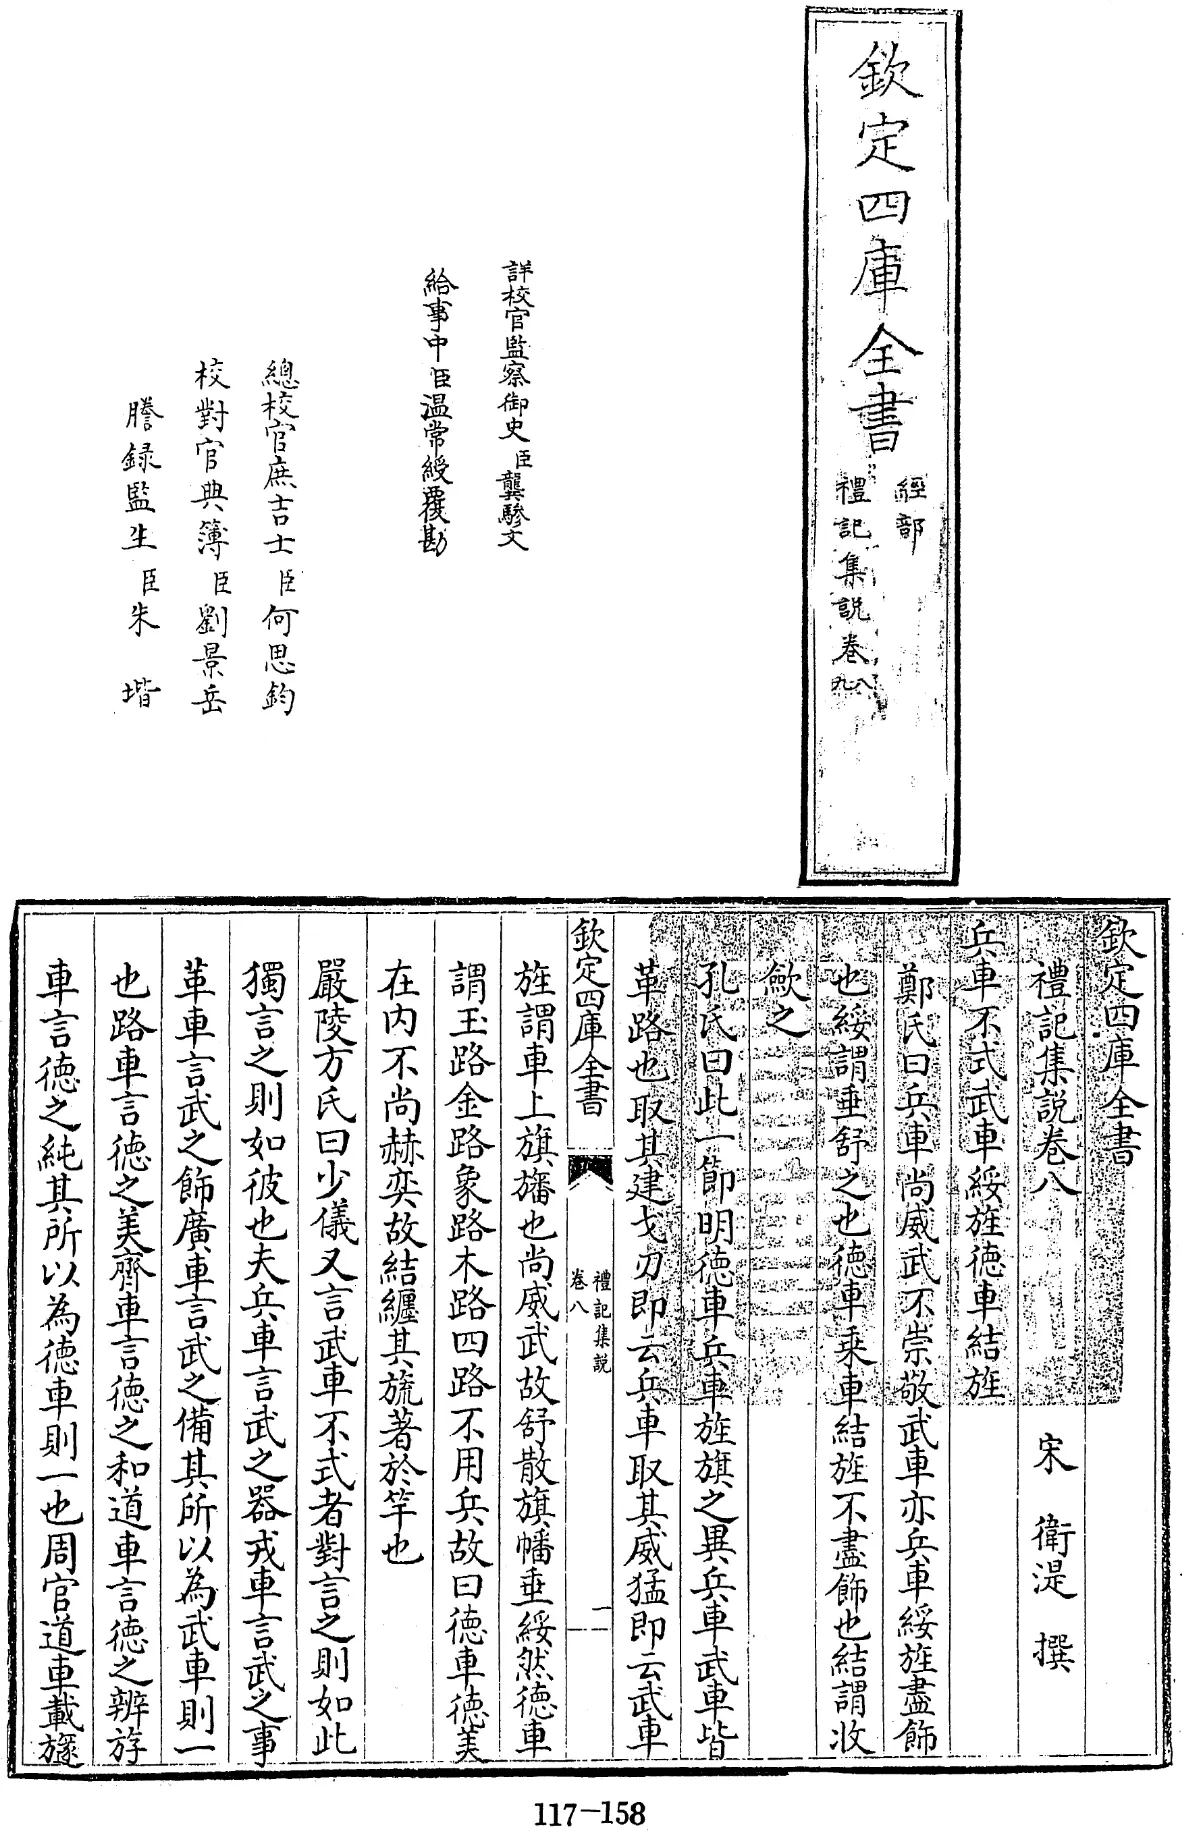 欽定四庫全書
經部
禮記集説卷八
九
詳校官監察御史臣龔驂文
給事中臣温常綬覆勘
總校官庶吉士臣何思鈞
校對官典簿臣劉景岳
謄録監生臣朱堦
欽定四庫全書
禮記集説卷八
宋 衛湜 撰
兵車不式武車綏旌徳車結旌
鄭氏曰兵車尚威武不崇敬武車亦兵車綏旌盡飾
也綏謂垂舒之也徳車乗車結旌不盡飾也結謂收
歛之
孔氏曰此一節明徳車兵車旌旗之異兵車武車皆
革路也取其建戈刃即云兵車取其威猛即云武車
欽定四庫全書
禮記集説
卷八
一
旌謂車上旗旛也尚威武故舒散旗幡垂綏然徳車
謂玉路金路象路木路四路不用兵故曰徳車徳美
在内不尚赫奕故結纒其旒著於竿也
嚴陵方氏曰少儀又言武車不式者對言之則如此
獨言之則如彼也夫兵車言武之器戎車言武之事
革車言武之飾廣車言武之備其所以為武車則一
也路車言徳之美齊車言徳之和道車言徳之辨斿
車言徳之純其所以為徳車則一也周官道車載旞
117-158